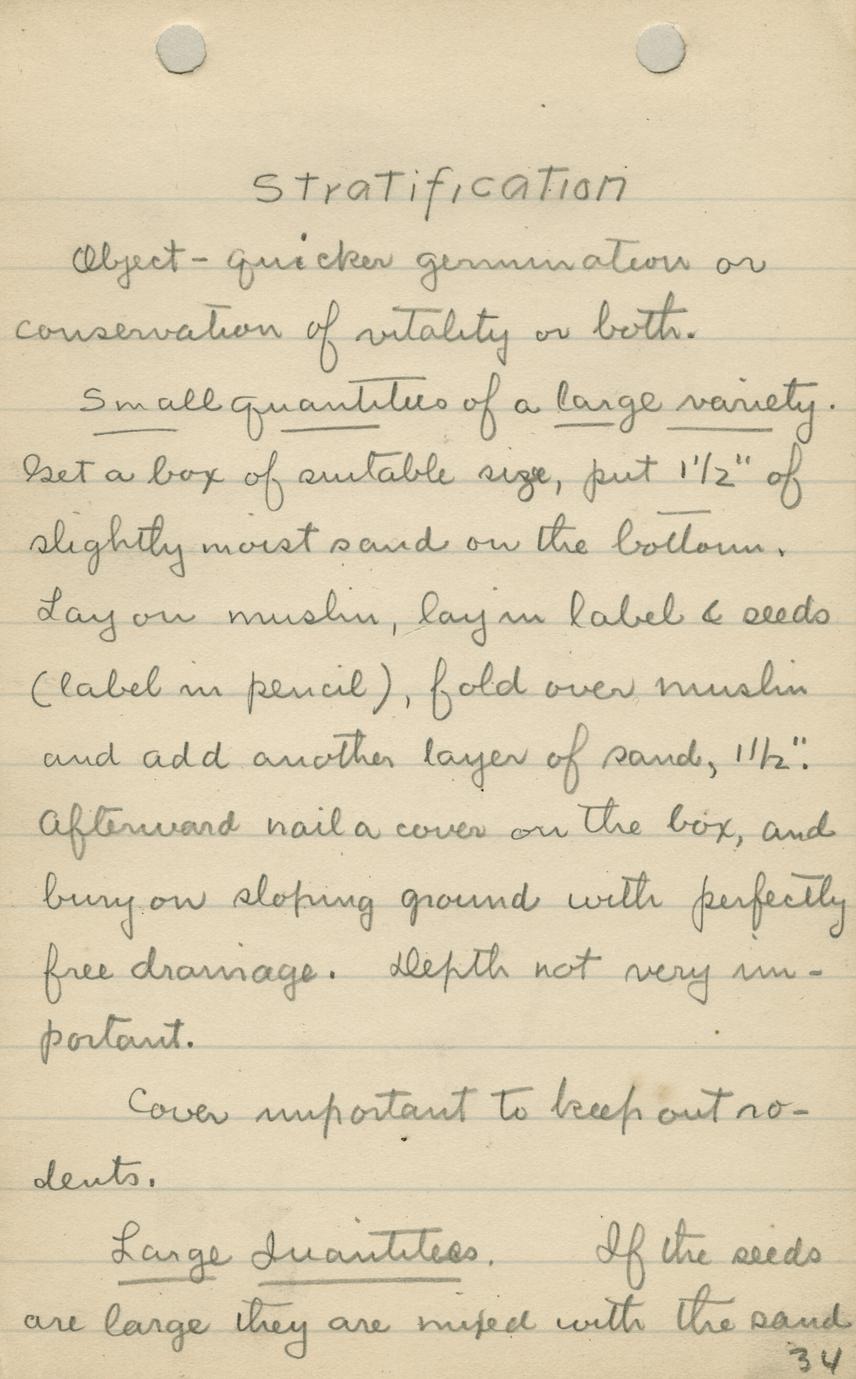 Stratification
Object - quicker germination or
conservation of vitality or both.
Small quantities of a large variety.
Get a box of suitable size, put 1 1/2" of
slightly moist sand on the bottom.
Lay on muslin, lay in label & seeds
(label in pencil), fold over muslin
and add another layer of sand, 1 1/2".
Afterward nail a cover on the box, and
bury on sloping ground with perfectly
free drainage. Depth not very im-
portant.
Cover important to keep out ro-
dents.
Large Quantities. If the seeds
are large they are mixed with the sand
34